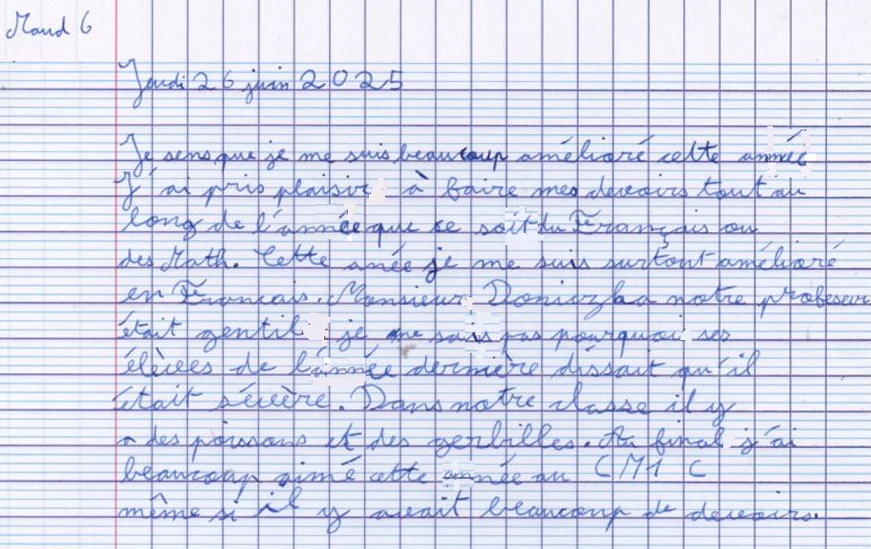 Maud 6
Jeudi 26 juin 2025
Je sens que je me suis beaucoup amélioré cette année
J'ai pris plaisir à faire mes devoirs tout au
long de l'année que ce soit du Français ou
des Math. Cette anée je me suis surtout amélioré
en Francais. Monsieur Doniczka notre professeur
était gentil je ne sais pas pourquoi ses
élèves de l'année dernière dissait qu'il
était sévère. Dans notre classe il y
a des poissons et des gerbilles. Au final j'ai
beaucoup aimé cette année au CM1 C
même si il y avait beaucoup de devoirs.